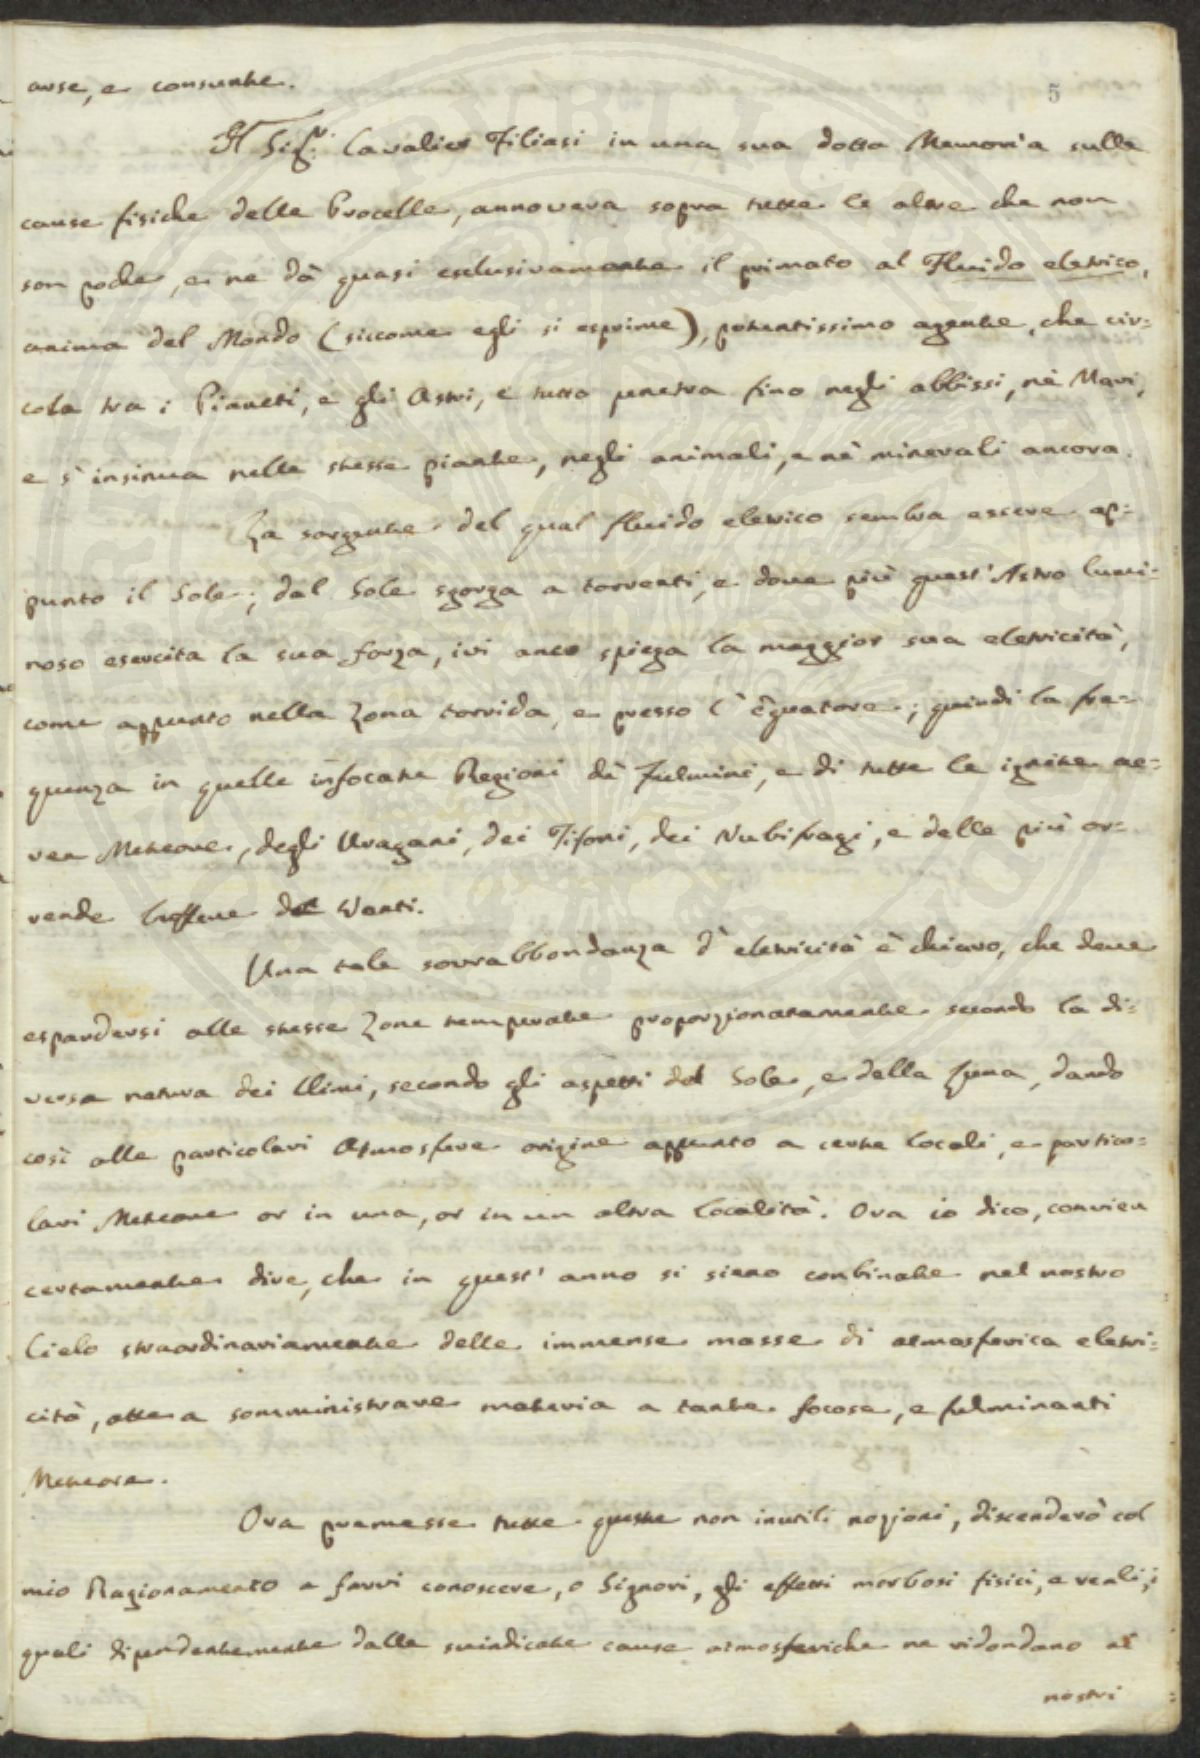 5
arse, e consunte.
Il Sig.r Cavalier Filiasi in una sua dotta Memoria sulle
cause fisiche delle Procelle, annovera sopra tutte le altre che non
son poche, e ne dà quasi esclusivamente il primato al Fluido eletrico,
anima del Mondo (siccome egli si esprime), potentissimo agente, che cir=
cola tra i Pianeti, e gli Astri, e tutto penetra fino negli abbissi, nè Mari,
e s'insinua nelle stesse piante, negli animali, e nè minerali ancora.
La sorgente del qual fluido eletrico sembra essere ap=
punto il Sole; dal Sole sgorga a torrenti, e dove più quest'Astro lumi=
noso esercita la sua forza, ivi anco spiega la maggior sua eletricità,
come appunto nella Zona torrida, e presso l'Equatore; quindi la fre=
quenza in quelle infocate Regioni dè Fulmini, e di tutte le ignite ae=
ree Meteore, degli Uragani, dei Tifoni, dei Nubifragi, e delle più or=
rende buffere de Venti.
Una tale sovrabbondanza d'eletricità è chiaro, che deve
espandersi alle stesse Zone temperate proporzionatamente secondo la di=
versa natura dei Climi, secondo gli aspetti del Sole, e della Luna, dando
così alle particolari Atmosfere origine appunto a certe locali, e partico=
lari Meteore or in una, or in un altra località. Ora io dico, convien
certamente dire, che in quest'anno si sieno conbinate nel nostro
Cielo straordinariamente delle immense masse di atmosferica eletri=
cità, atte a somministrare materia a tante focose, e fulminanti
Meteore.
Ora premesse tutte queste non inutili nozioni, discenderò col
mio Ragionamento a farvi conoscere, o Signori, gli effetti morbosi fisici, e reali, i
quali dipendentemente dalle suindicate cause atmosferiche ne ridondano ai
nostri